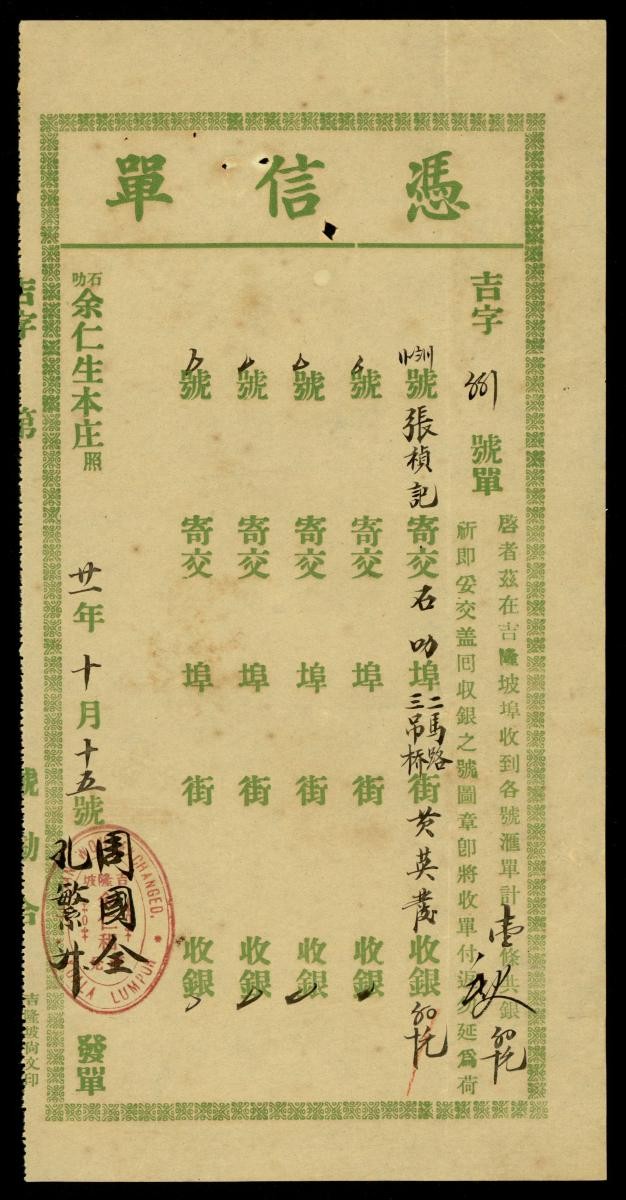 憑信單
吉字 號單
啓者茲在吉隆坡埠收到各號滙單計壹條共銀
祈即妥交盖回收銀之號圖章卽將收單付返 延爲荷
號張楨記寄交石叻埠二馬路三吊桥街黄英 收銀
號 寄交 埠 街 收銀
號 寄交 埠 街 收銀
號 寄交 埠 街 收銀
號 寄交 埠 街 收銀
石叻余仁生本庄照
廿一年十月十五號
周國全
孔繁
發單
CHANGED.
吉隆坡
KUALA LUMPUR
吉字 第 號 勘合
吉隆坡尚文印